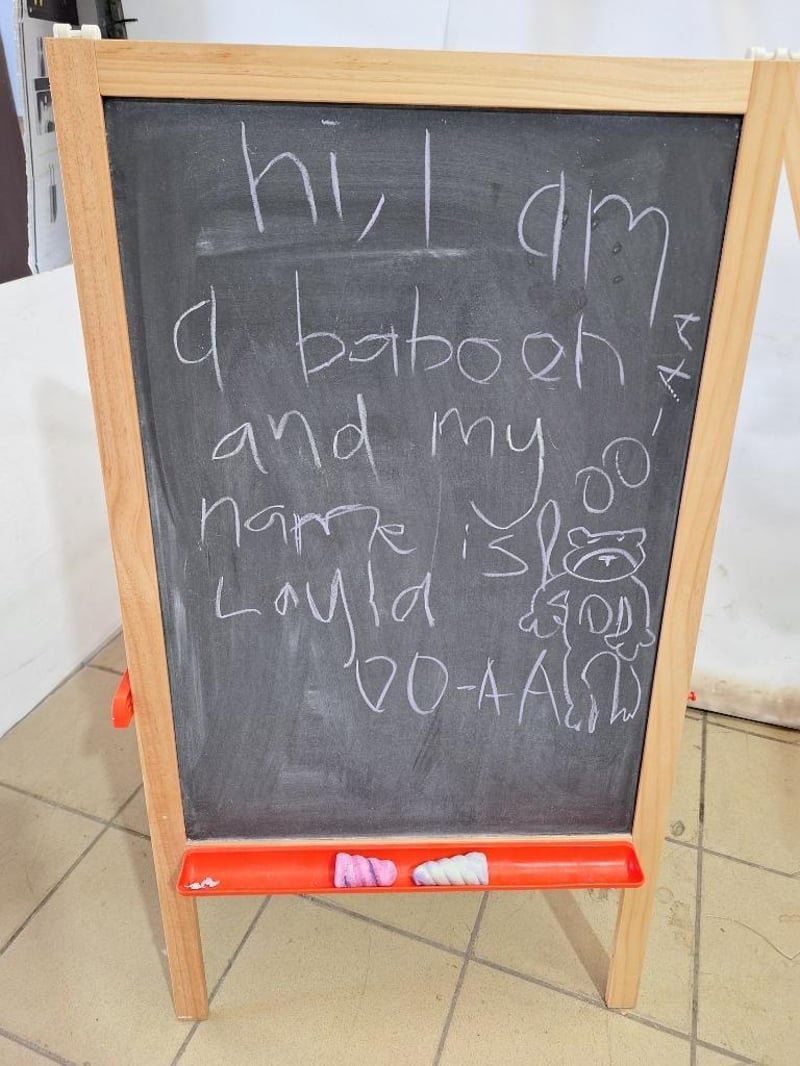 hi, I am
a baboon
and my
name is
Layla
OO-AA
OO-AA